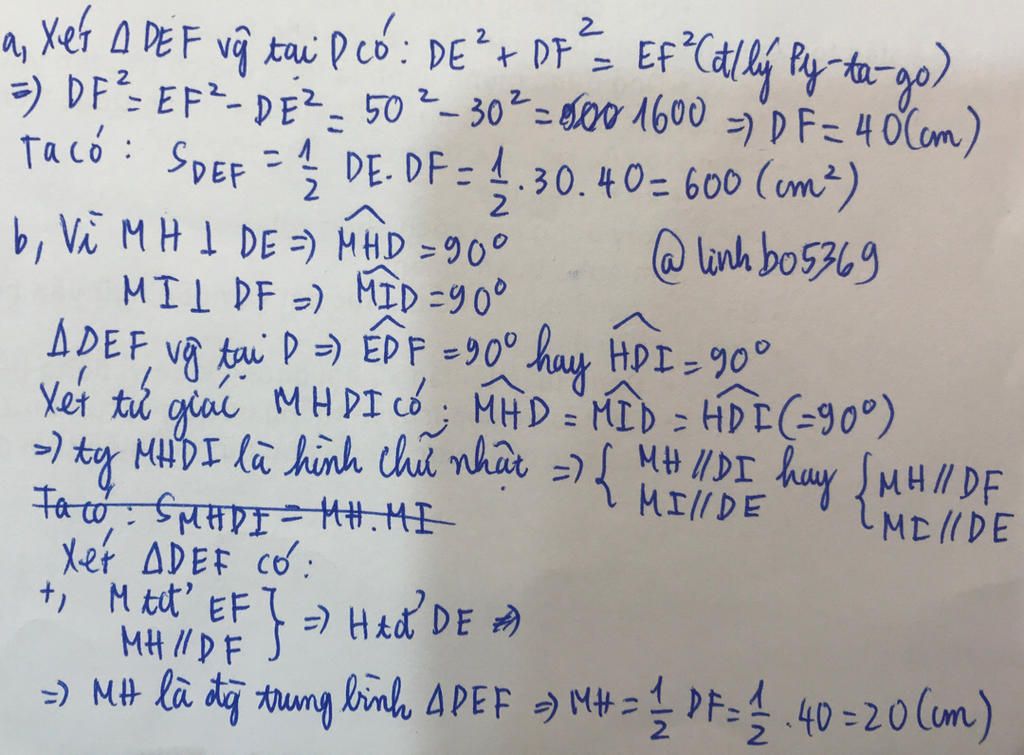 a, Xét Δ DEF vg tại D có: DE² + DF² = EF² (đ/lý Py-ta-go)
=> DF² = EF² - DE² = 50² - 30² = 1600 => DF = 40 (cm)
Ta có: S_DEF = 1/2 DE. DF = 1/2 . 30 . 40 = 600 (cm²)
b, Vì MH ⊥ DE => \widehat{MHD} = 90°
@linhbo5369
MI ⊥ DF => \widehat{MID} = 90°
ΔDEF vg tại D => \widehat{EDF} = 90° hay \widehat{HDI} = 90°
Xét tứ giác MHDI có: \widehat{MHD} = \widehat{MID} = \widehat{HDI} (=90°)
=> tg MHDI là hình chữ nhật => { MH // DI MI // DE hay { MH // DF MI // DE
Ta có: S_MHDI = MH. MI
Xét ΔDEF có:
+, M tđ' EF
MH // DF } => H tđ' DE =>
=> MH là đg trung bình ΔDEF => MH = 1/2 DF = 1/2 . 40 = 20 (cm)